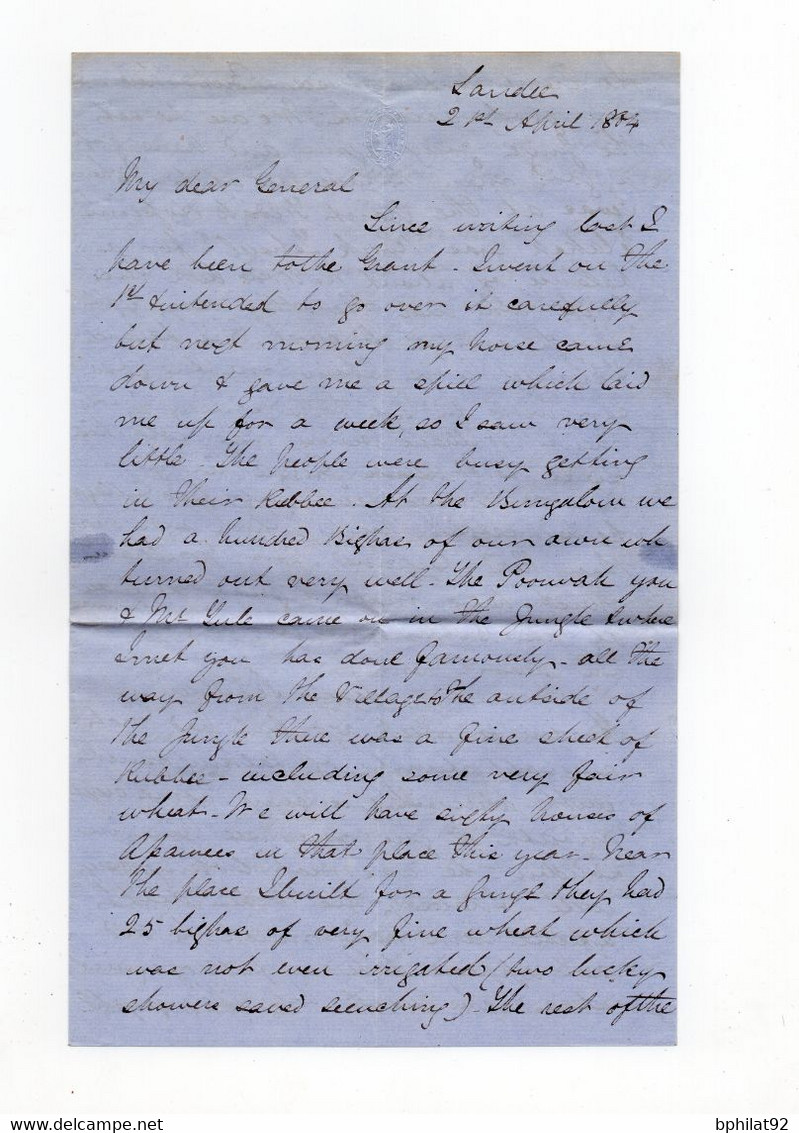 Sandee
21st April 1864
My dear General
Since writing last I
have been to the Grant - I went on the
1st & intended to go over it carefully
but next morning my horse came
down & gave me a spill which laid
me up for a week, so I saw very
little. The people were busy getting
in their Rubbee. At the Bungalow we
had a hundred Bighas of our own wh
turned out very well - The Poorwah you
& Mr Yule came on in the Jungle & where
I met you has done famously - all the
way from the Village to the outside of
the Jungle there was a fine sheet of
Rubbee - including some very fair
wheat - We will have sixty houses of
Asamees in that place this year - Near
the place I built for a gunge they had
25 bighas of very fine wheat which
was not even irrigated (two lucky
showers saved seenching) - The rest of the
bphilat92